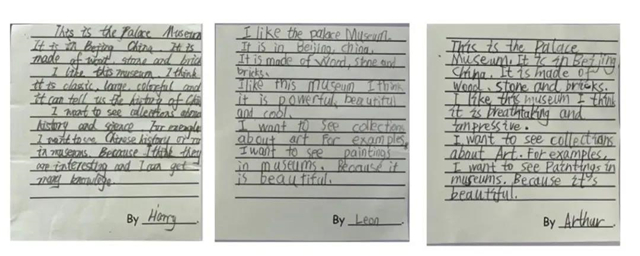 This is the Palace Museum
It is in Beijing China. It is
made of wood, stone and brick
I like this museum. I think
it is classic, large, colorful and
it can tell us the history of China
I want to see collections about
history and science. For example
I want to see Chinese history or
in museums. Because I think they
are interesting and I can get
many knowledge.
By Harry.
I like the palace Museum.
It is in Beijing, China.
It is made of Wood, stone and
bricks.
I like this museum I think
it is powerful, beautiful
and cool.
I want to see collections
about art For examples,
I want to see paintings
in museums. Because it
is beautiful.
By Leon.
This is the Palace
Museum. It is in Beijing
China. It is made of
wood, stone and bricks.
I like this museum I think
it is breathtaking and
impressive.
I want to see collections
about Art. For examples,
I want to see Paintings in
museums. Because it's
beautiful.
By Arthur.